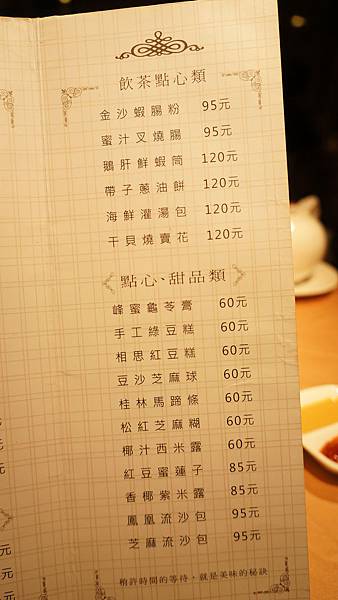 飲茶點心類
金沙蝦腸粉 95元
蜜汁叉燒腸 95元
鵝肝鮮蝦筒 120元
帶子蔥油餅 120元
海鮮灌湯包 120元
干貝燒賣花 120元
點心、甜品類
蜂蜜龜苓膏 60元
手工綠豆糕 60元
相思紅豆糕 60元
豆沙芝麻球 60元
桂林馬蹄條 60元
松紅芝麻糊 60元
椰汁西米露 60元
紅豆蜜蓮子 85元
香椰紫米露 85元
鳳凰流沙包 95元
芝麻流沙包 95元
稍許時間的等待，就是美味的秘訣
元
元
元
元
元